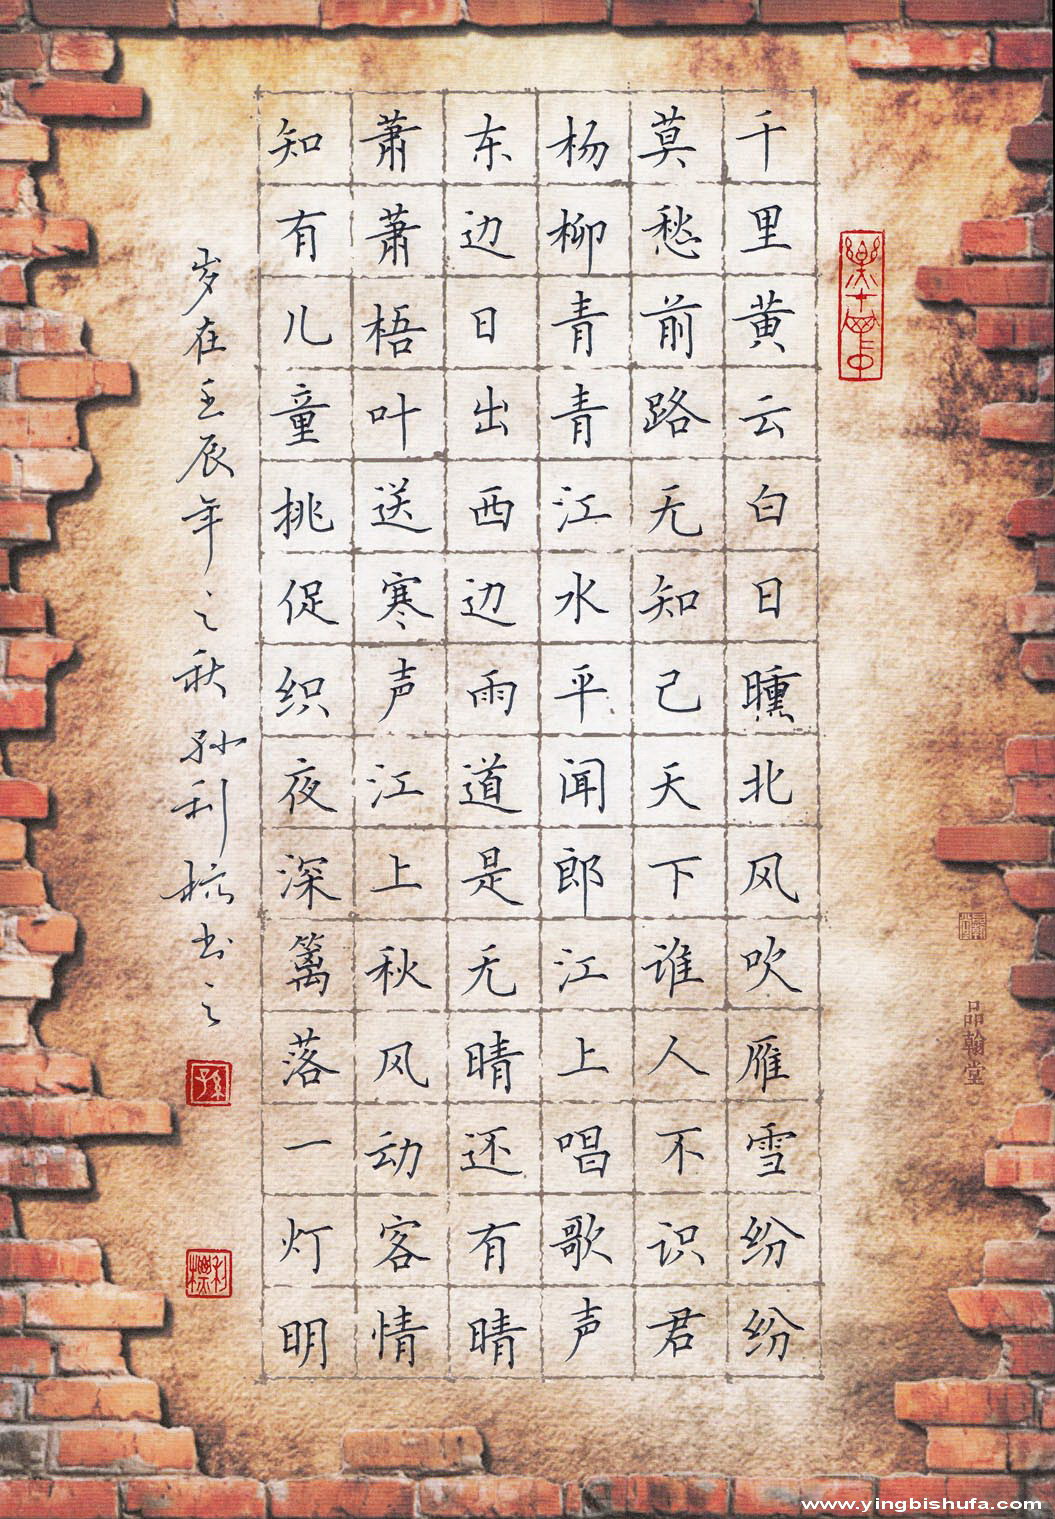 千里黄云白日曛北风吹雁雪纷纷
莫愁前路无知己天下谁人不识君
杨柳青青江水平闻郎江上唱歌声
东边日出西边雨道是无晴还有晴
萧萧梧叶送寒声江上秋风动客情
知有儿童挑促织夜深篱落一灯明
岁在壬辰年之秋孙利标书之
品翰堂
www.yingbishufa.com